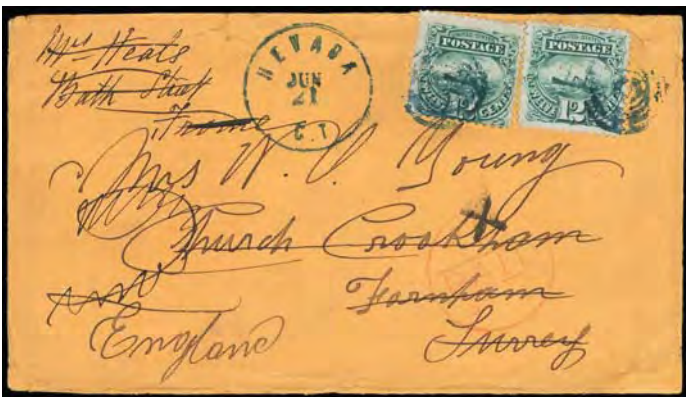 Mrs Heals
Bath Street
Frome
NEVADA
JUN
21
C.T.
POSTAGE
12 CENTS
POSTAGE
12
Mrs W. V. Young
Church Crookham
Farnham
Surrey
England